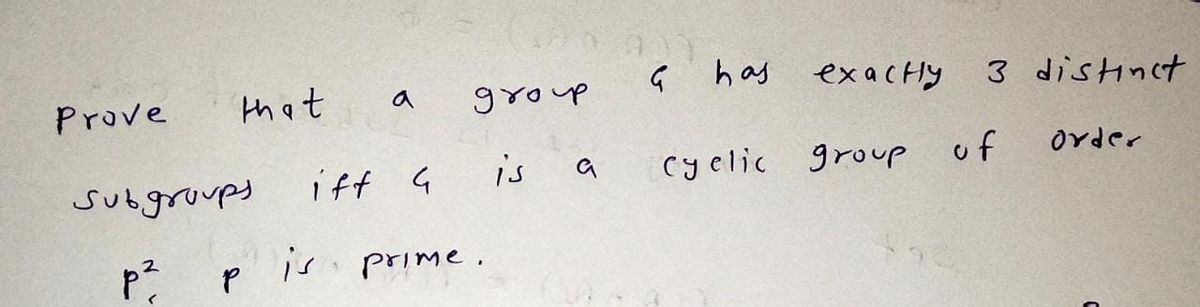 Prove that a group G has exactly 3 distinct
subgroups iff G is a cyclic group of order
p², p is prime.